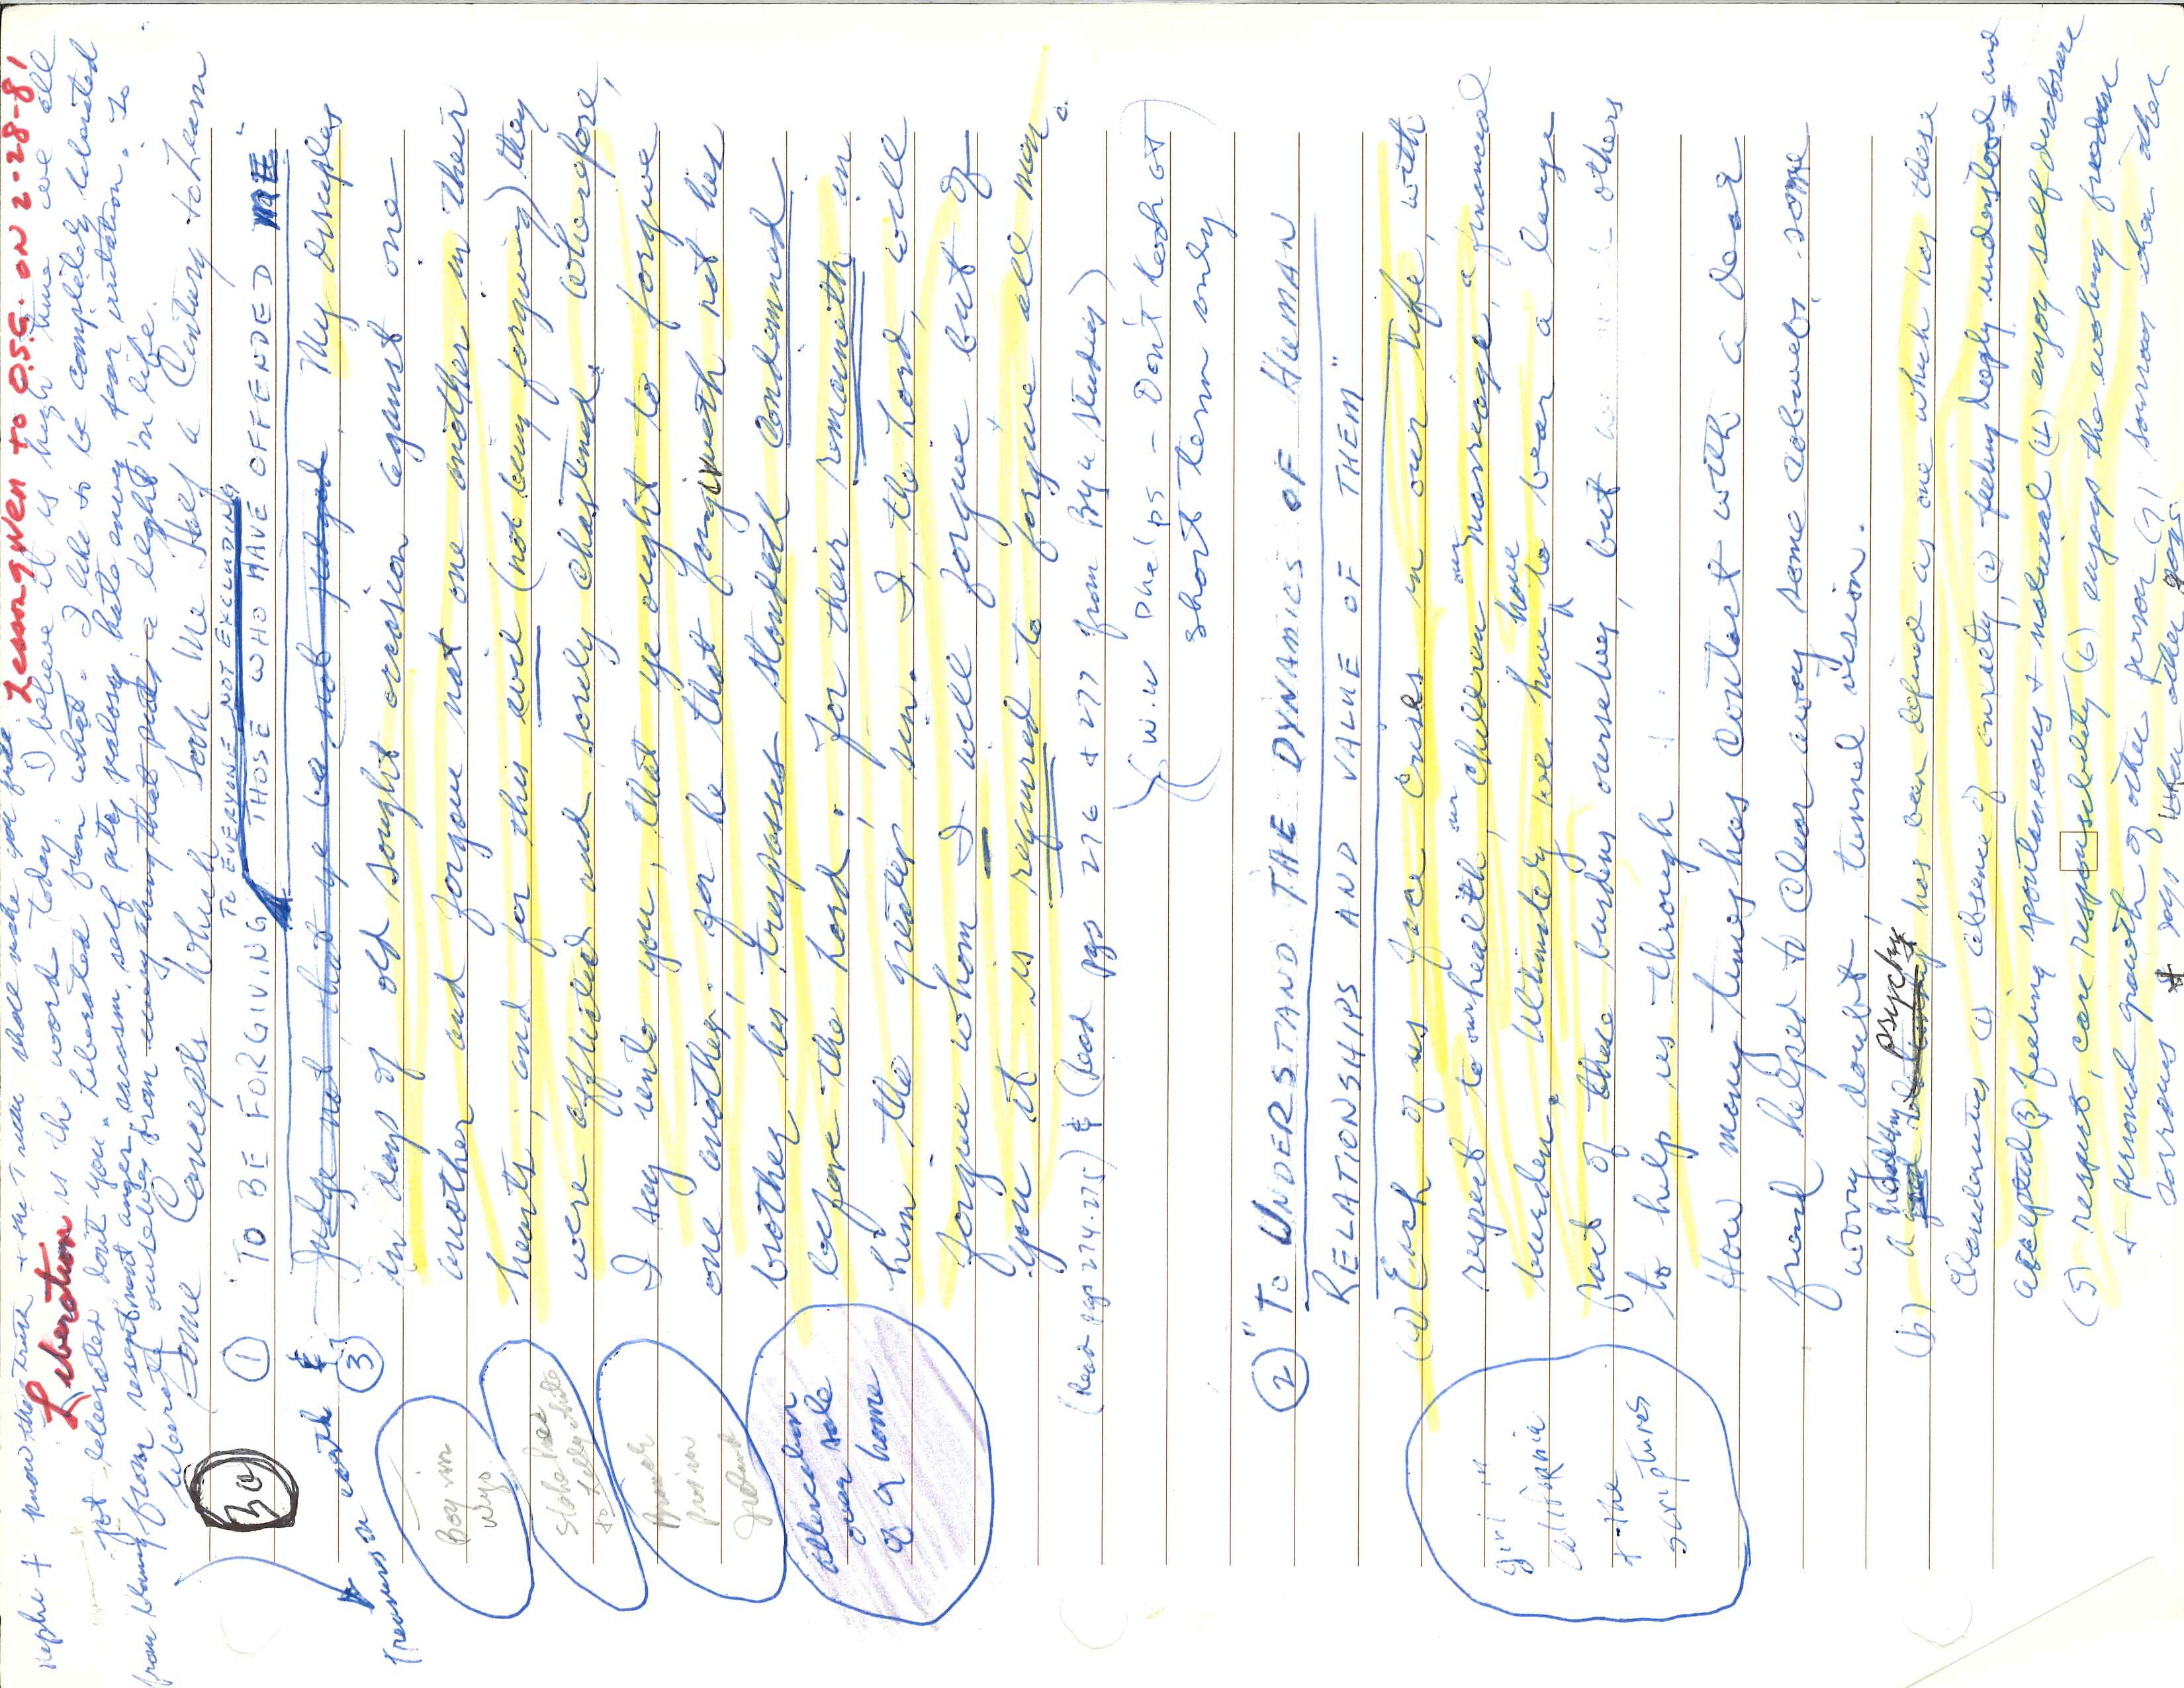 Lesson given to O.S.G. on 2-28-81
+ know the truth + the truth shall make you free
Liberation is the word today. I believe it is high time we all
got liberated don't you. Liberated from what. I like to be completely liberated
from resentment anger, sarcasm, self pity jealousy hate envy fear irritation. To
liberate ourselves from everything that puts a blight in life.
Some Concepts Which Took Me Half a Century to Learn
① "TO BE FORGIVING TO EVERYONE NOT EXCLUDING THOSE WHO HAVE OFFENDED ME"
Judge not that ye be not judged. My disciples
in days of old sought occasion against one
another and forgave not one another in their
hearts, and for this evil (not being forgiving) they
were afflicted and sorely chastened. Wherefore,
I say unto you, that ye ought to forgive
one another, for he that forgiveth not his
brother his trespasses standeth condemned
before the Lord, for their remaineth in
him the greater sin. I, the Lord, will
forgive whom I will forgive but of
you it is required to forgive all men.
(Read pgs 274-275) & (Read pgs 276 + 277 from By u studies)
(W.W Phelps - Don't look at
short term only)
treasures in earth & ③
Boy in
Wyo.
altercation
over sale
of a home
② "To UNDERSTAND THE DYNAMICS OF HUMAN
RELATIONSHIPS AND VALUE OF THEM"
(a) Each of us face crises in our life, with
respect to our health, our children our marriage, a financial
burden. Ultimately we have to bear a large
part of these burdens ourselves, but others
to help us through
How many times has contact with a dear
friend helped to clear away some cobwebs, some
worry doubt, tunnel vision.
girl in
California
+ the
scriptures
(b) a healthy psyche has been defined as one which has these
Characteristics (1) absence of anxiety, (2) feeling deeply understood and
accepted (3) feeling spontaneous + natural (4) enjoy self disclosure
(5) respect, care responsibility (6) enjoys the evolving freedom
+ personal growth of other person (7) sorrows when other
sorrows + joys when other joys.